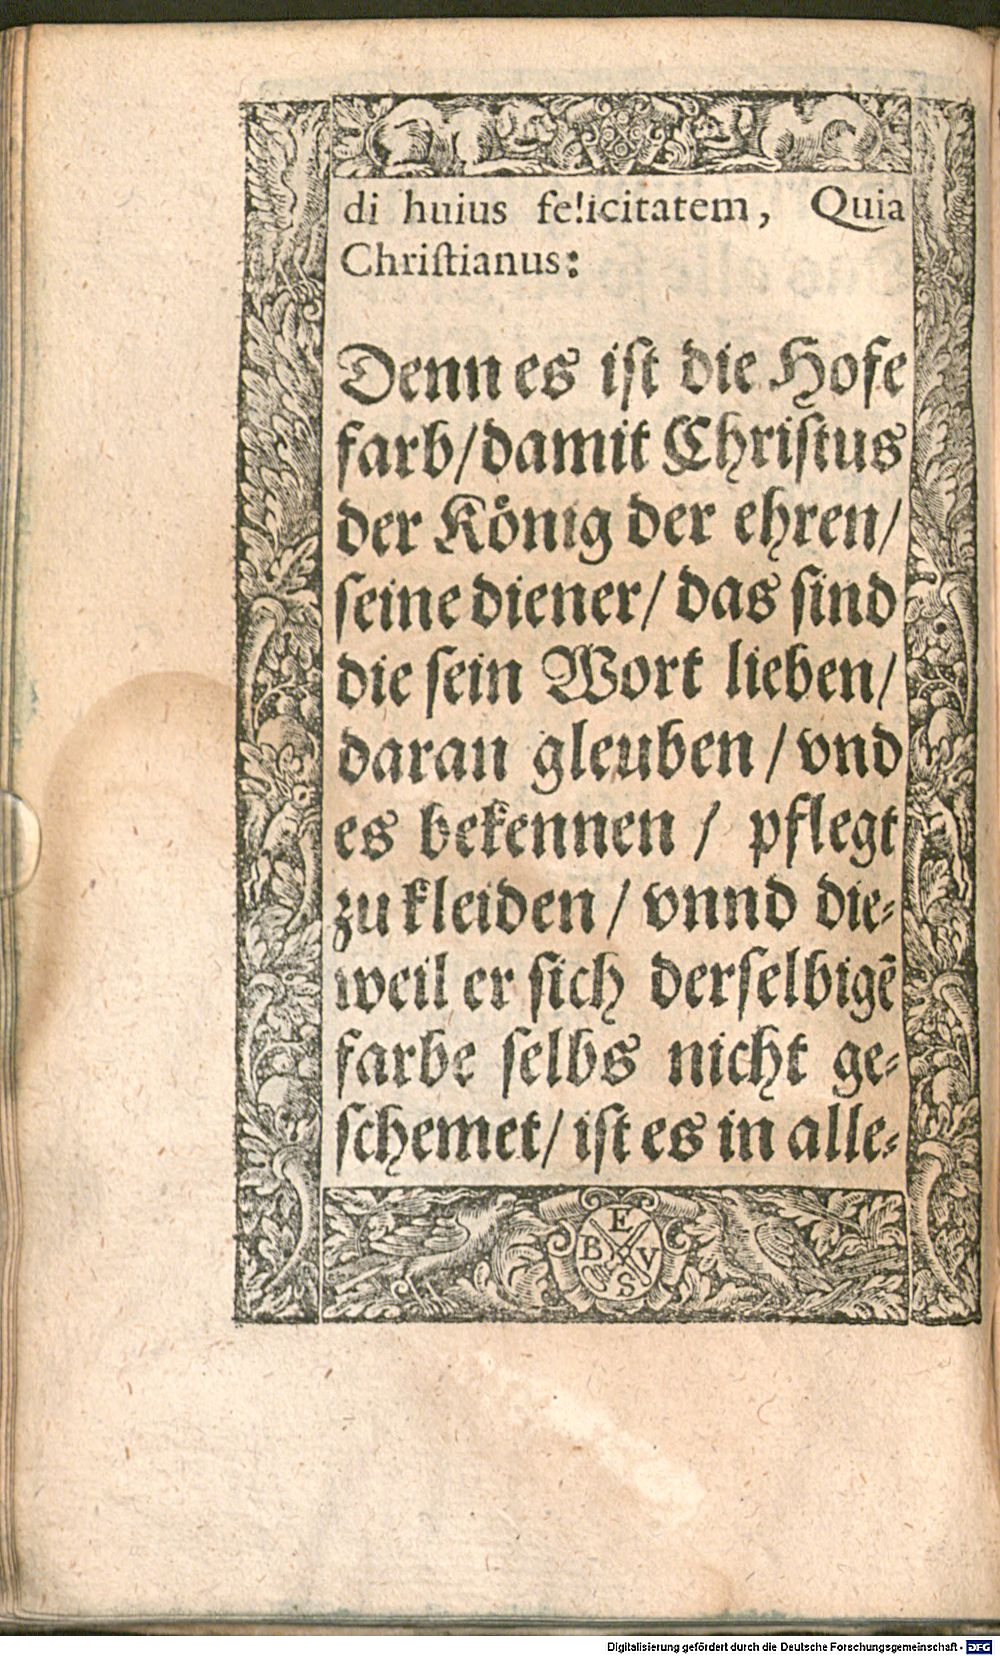 di huius felicitatem, Quia
Chriſtianus:
Denn es iſt die Hofe
farb/damit Chriſtus
der Koͤnig der ehren/
ſeine diener/ das ſind
die ſein Wort lieben/
daran gleuben / vnd
es bekennen / pflegt
zu kleiden / vnnd die⸗
weil er ſich derſelbigẽ
farbe ſelbs nicht ge⸗
ſchemet/ iſt es in alle⸗
E
B V
S
Digitalisierung gefördert durch die Deutsche Forschungsgemeinschaft - DFG